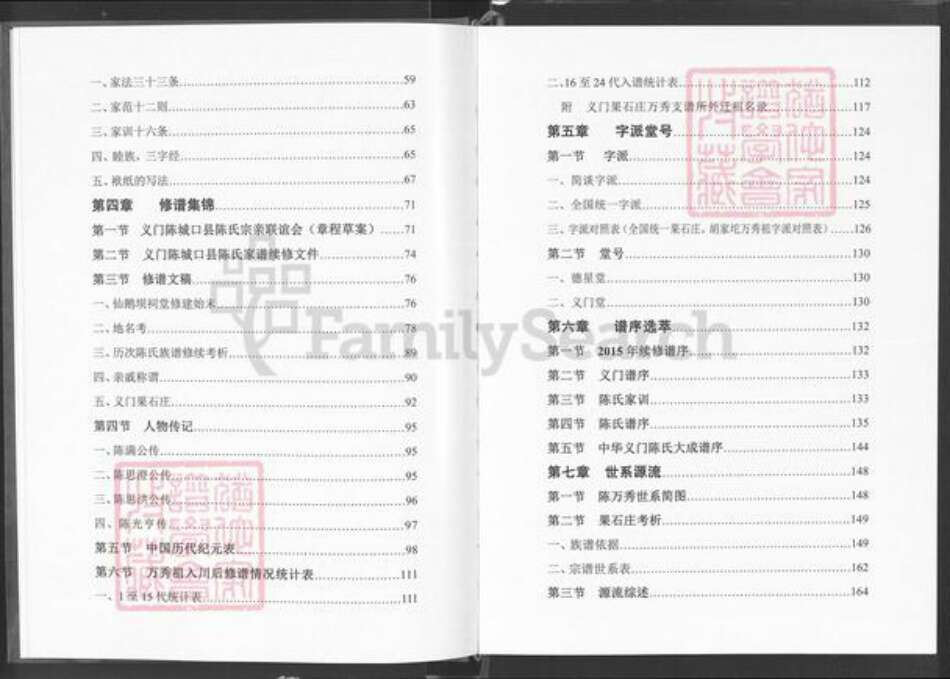 一、家法三十三条 59
二、家范十二则 63
三、家训十六条 65
四、睦族，三字经 65
五、袱纸的写法 67
第四章 修谱集锦 71
第一节 义门陈城口县陈氏宗亲联谊会（章程草案） 71
第二节 义门陈城口县陈氏家谱续修文件 74
第三节 修谱文稿 76
一、仙鹅坝祠堂修建始末 76
二、地名考 78
三、历次陈氏族谱修续考析 89
四、亲戚称谓 90
五、义门果石庄 92
第四节 人物传记 95
一、陈满公传 95
二、陈思澄公传 95
三、陈思洪公传 96
四、陈光亨传 97
第五节 中国历代纪元表 98
第六节 万秀祖入川后修谱情况统计表 111
一、1至15代统计表 111
二、16至24代入谱统计表 112
附 义门果石庄万秀支谱所外迁租名录 117
第五章 字派堂号 124
第一节 字派 124
一、简谈字派 124
二、全国统一字派 125
三、字派对照表（全国统一果石庄，胡家坨万秀祖字派对照表） 126
第二节 堂号 130
一、德星堂 130
二、义门堂 130
第六章 谱序选萃 132
第一节 2015年续修谱序 132
第二节 义门谱序 133
第三节 陈氏家训 133
第四节 陈氏谱序 135
第五节 中华义门陈氏大成谱序 144
第七章 世系源流 148
第一节 陈万秀世系简图 148
第二节 果石庄考析 149
一、族谱依据 149
二、宗谱世系表 162
第三节 源流综述 164
FamilySearch